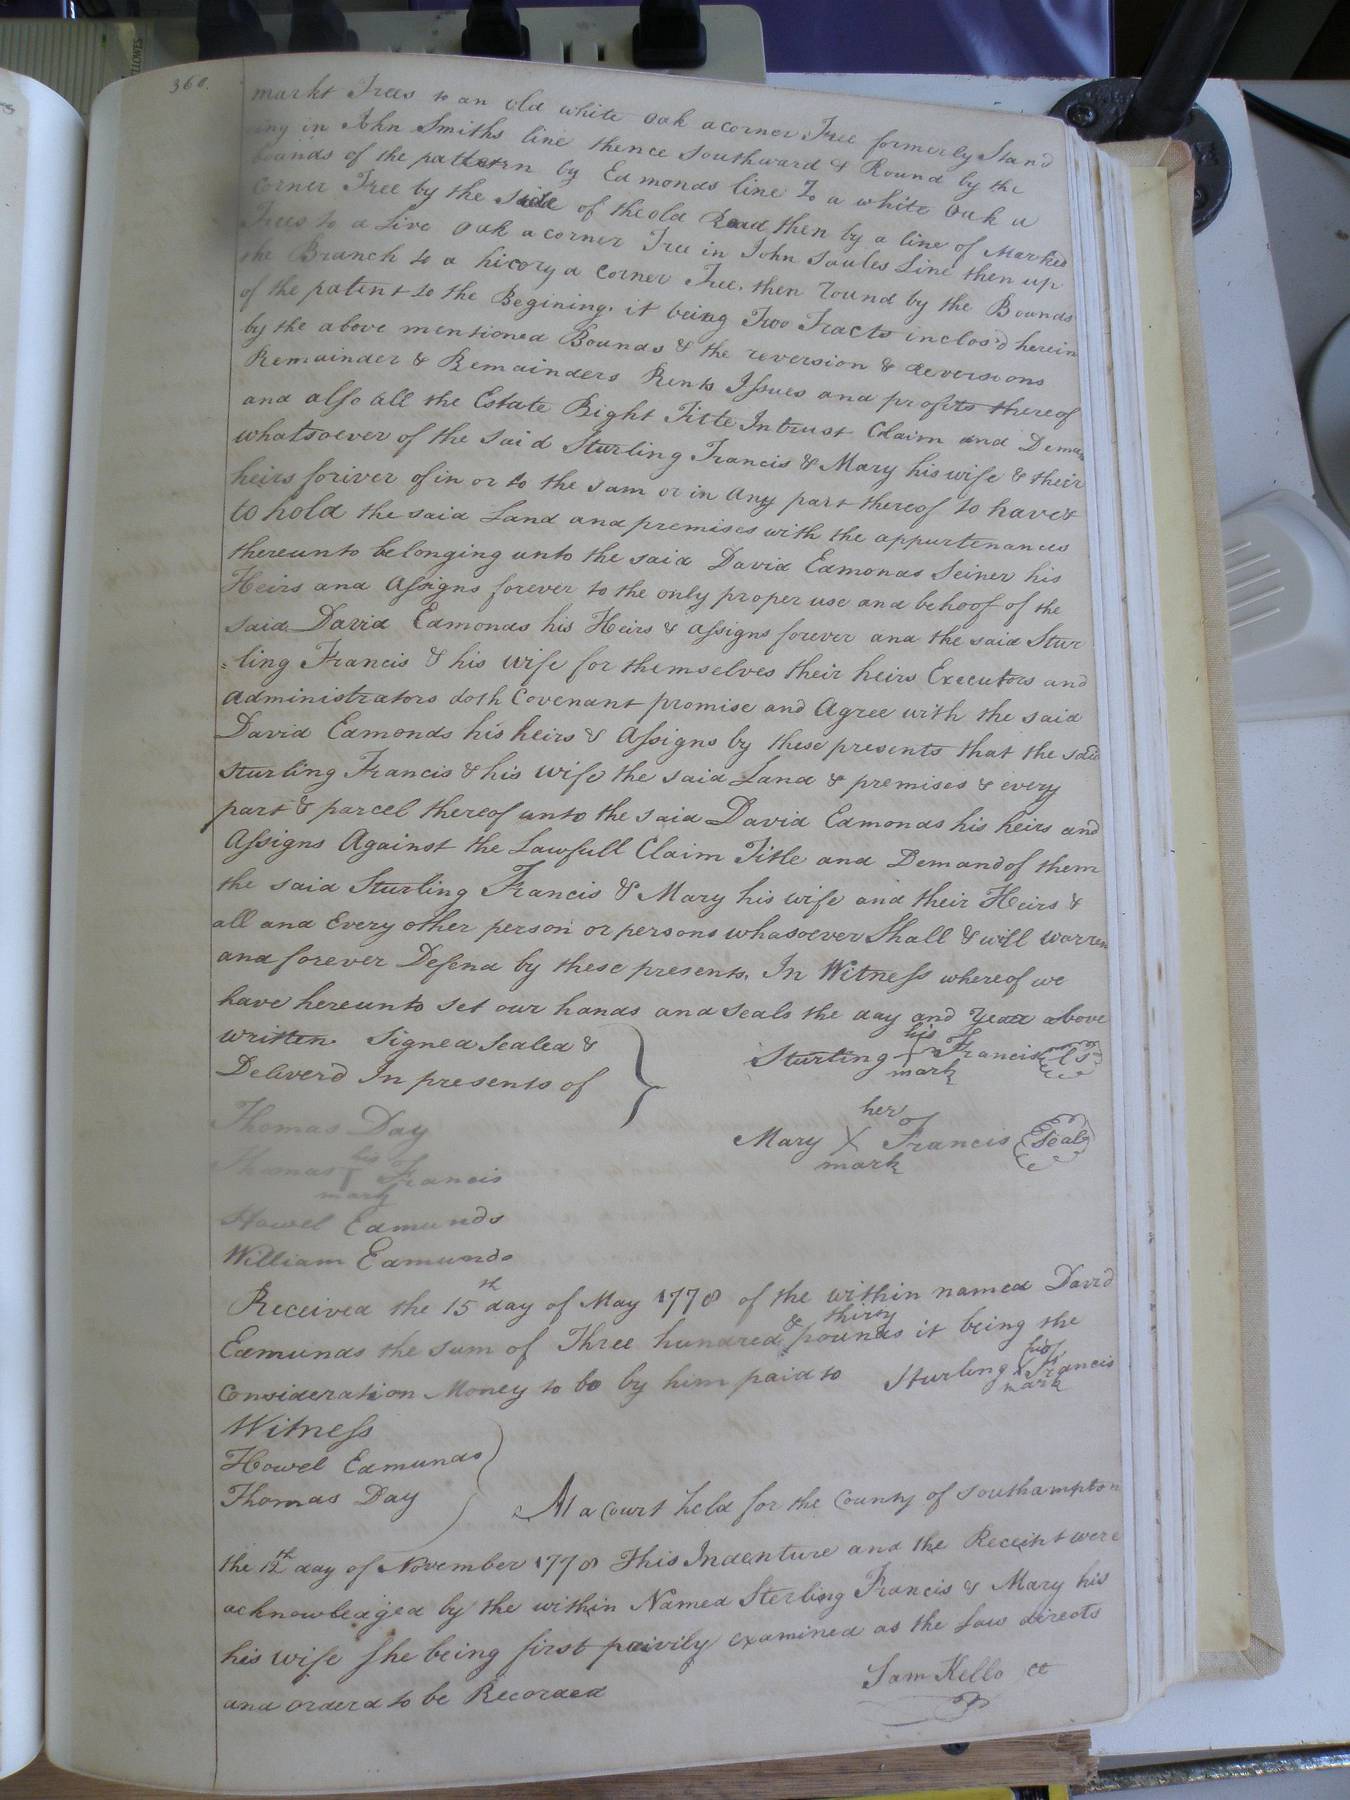 360.
markt Trees to an old white oak a corner Tree formerly Stand
ing in John Smiths line thence Southward & Round by the
bounds of the pattern by Edmonds line To a white oak a
corner Tree by the side of the old Road then by a line of Marked
Trees to a Live oak a corner Tree in John Saules Line then up
the Branch to a hicory a corner Tree. then round by the Bounds
of the patent to the Begining. it being Two Tracts inclos'd herein
by the above mentioned Bounds & the reversion & Reversions
Remainder & Remainders Rents Issues and profits thereof
and also all the Estate Right Title Intrust Claim and Deman
whatsoever of the said Sturling Francis & Mary his wife & their
heirs foriver of in or to the sam or in Any part thereof to have &
to hold the said Land and premises with the appurtenances
thereunto belonging unto the said David Edmonds Seiner his
Heirs and Assigns forever to the only proper use and behoof of the
said David Edmonds his Heirs & assigns forever and the said Stur
=ling Francis & his wife for themselves their heirs Executors and
administrators doth Covenant promise and Agree with the said
David Edmonds his heirs & Assigns by these presents that the said
Sturling Francis & his wife the said Land & premises & every
part & parcel thereof unto the said David Edmonds his heirs and
Assigns Against the Lawfull Claim Title and Demand of them
the said Sturling Francis & Mary his wife and their Heirs &
all and Every other person or persons whasoever Shall & will warren
and forever Defend by these presents. In Witness whereof we
have hereunto set our hands and seals the day and Year above
written. Signed Sealed &
Deliverd In presents of
his
Sturling Francis LS
mark
her
Mary X Francis Seal
mark
Thomas Day
his
Thomas T Francis
mark
Howel Edmunds
William Edmunds
Received the 15th day of May 1778 of the within named David
Edmunds the sum of Three hundred & thirty pounds it being the
Consideration Money to be by him paid to
his
Sturling X Francis
mark
Witness
Howel Edmunds
Thomas Day
At a Court held for the County of Southampton
the 12th day of November 1778 This Indenture and the Receint were
acknowledged by the within Named Sterling Francis & Mary his
his wife She being first privily examined as the Law directs
and orderd to be Recorded
Sam Kello Ct